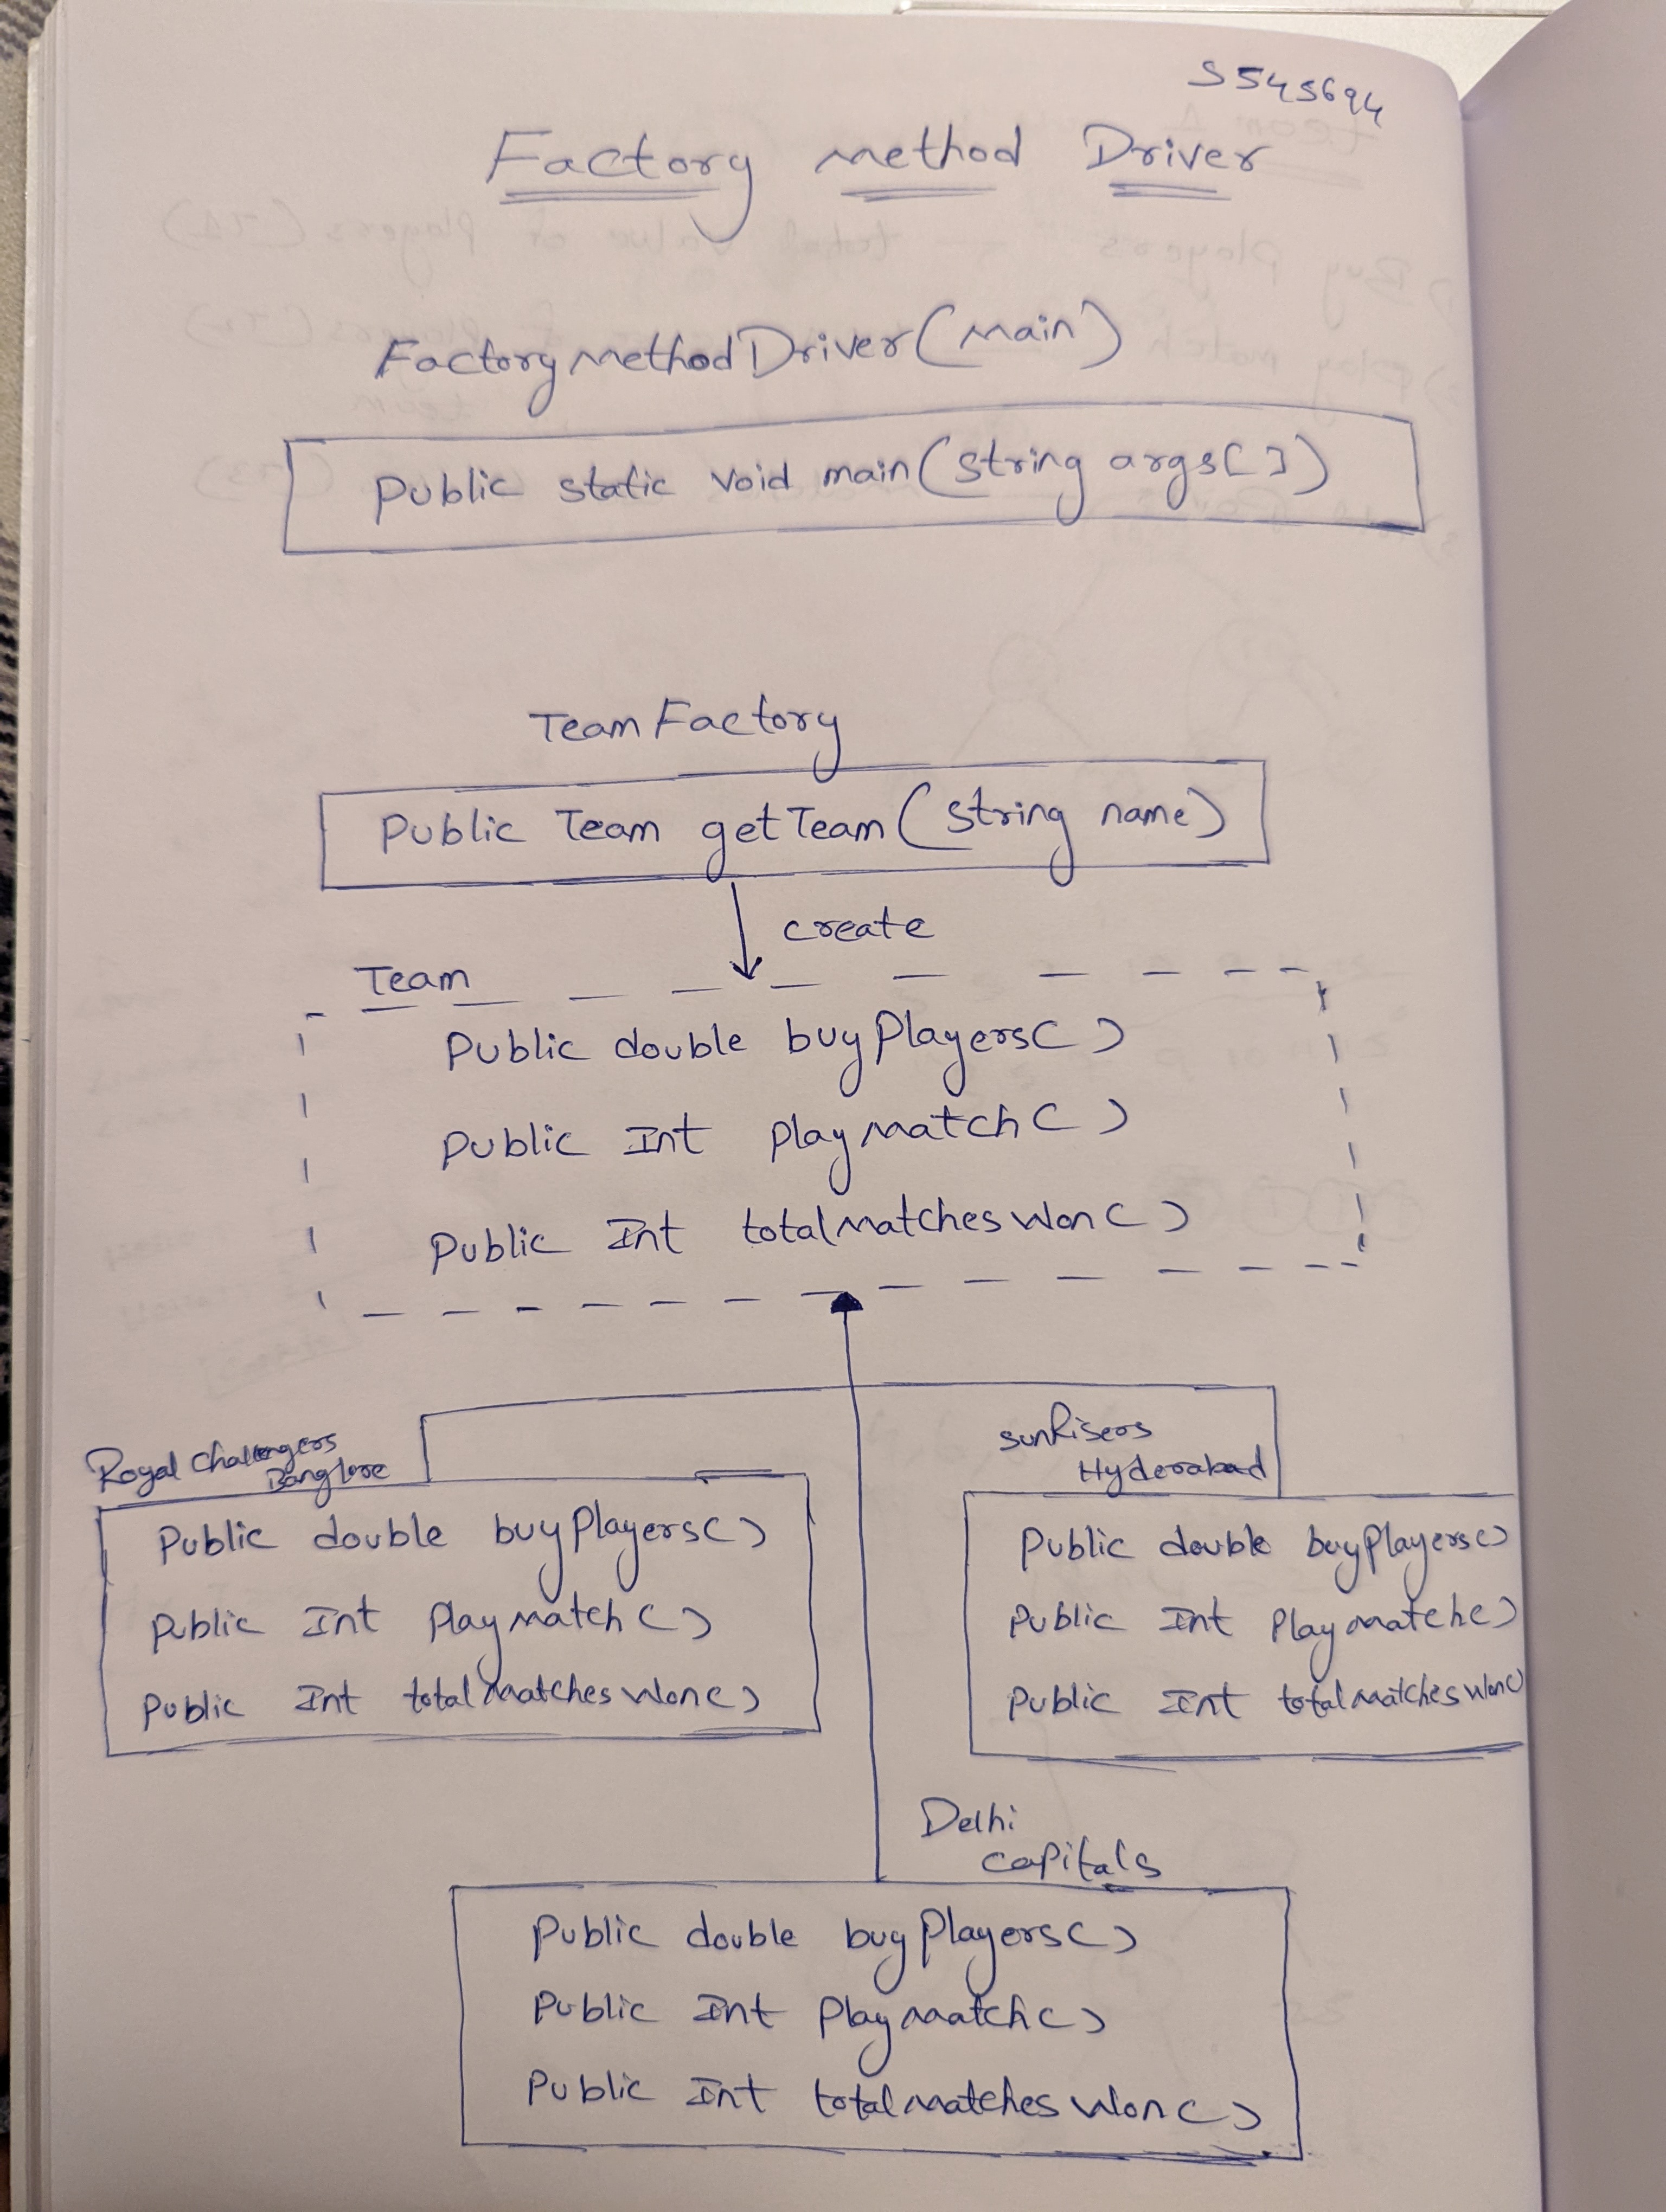 S545694
Factory Method Driver
FactoryMethodDriver(Main)
Public static void main(string args[])
Team Factory
Public Team getTeam(String name)
create
Team
Public double buyPlayers()
Public Int PlayMatch()
Public Int totalMatchesWon()
Royal Challengers
Banglore
Public double buyPlayers()
Public Int PlayMatch()
Public Int totalMatchesWon()
SunRisers
Hyderabad
Public double buyPlayers()
Public Int PlayMatch()
Public Int totalMatchesWon()
Delhi
Capitals
Public double buyPlayers()
Public Int PlayMatch()
Public Int totalMatchesWon()